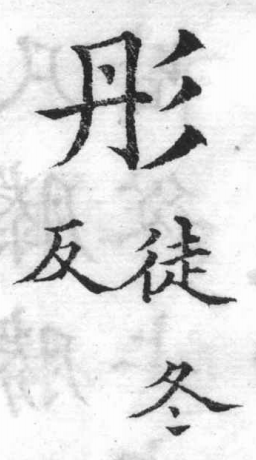 彤
徒冬
反